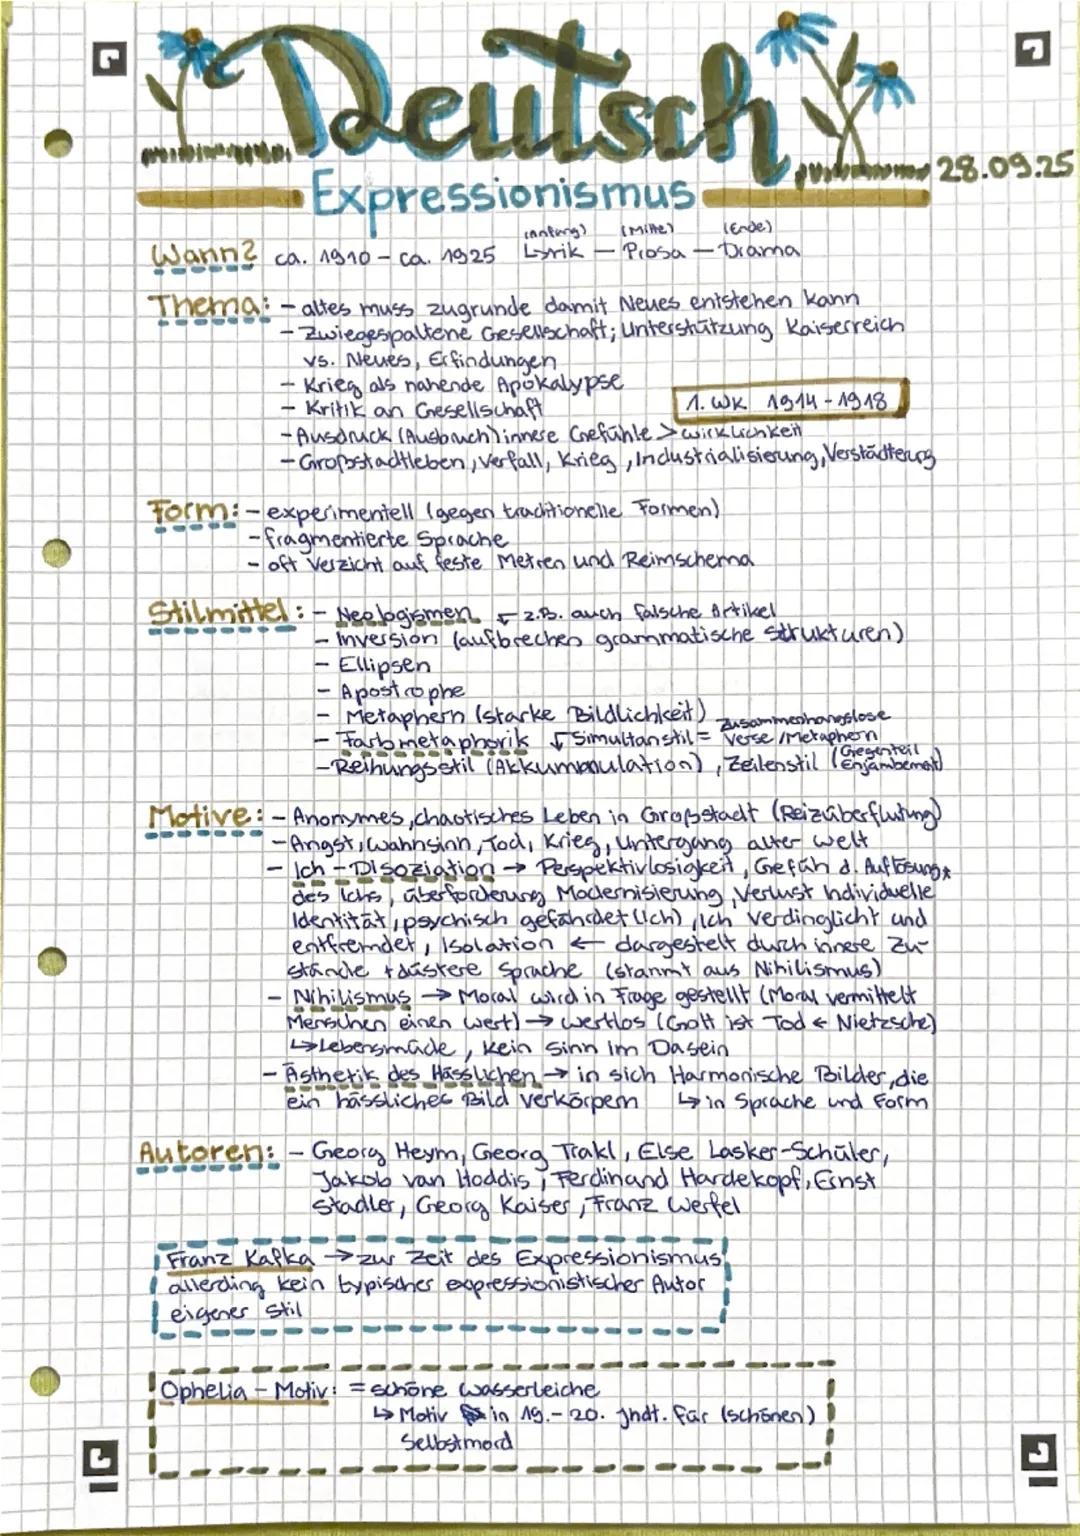 Deutsch
28.09.25
Expressionismus
(Anfang) (Mitte) (Ende)
Wann? ca. 1910 - ca. 1925 Lyrik — Prosa — Drama
Thema: - altes muss zugrunde damit Neues entstehen kann
- Zwiegespaltene Gesellschaft; Unterstützung Kaiserreich
vs. Neues, Erfindungen
- Krieg als nahende Apokalypse
- Kritik an Gesellschaft
1. WK 1914 - 1918
- Ausdruck (Ausbruch) innere Gefühle > wirklichkeit
- Großstadtleben, Verfall, Krieg, Industrialisierung, Verstädterung
Form: - experimentell (gegen traditionelle Formen)
- fragmentierte Sprache
- oft Verzicht auf feste Metren und Reimschema
Stilmittel: - Neologismen ← z.B. auch falsche Artikel
- Inversion (aufbrechen grammatische Strukturen)
- Ellipsen
- Apostrophe
- Metaphern (starke Bildlichkeit)
- Farbmetaphorik ↓ Simultanstil = Zusammenhangslose Verse/Metaphern
- Reihungsstil (Akkumulation), Zeilenstil (Gegenteil Enjambement)
Motive: - Anonymes, chaotisches Leben in Großstadt (Reizüberflutung)
- Angst, Wahnsinn, Tod, Krieg, Untergang alter Welt
- Ich - Disoziation → Perspektivlosigkeit, Gefüh d. Auflösung
des Ichs, überforderung Modernisierung, Verlust individuelle
Identität, psychisch gefährdet (Ich), Ich verdinglicht und
entfremdet, Isolation ← dargestelt durch innere Zu-
stände + düstere Sprache (stammt aus Nihilismus)
- Nihilismus → Moral wird in Frage gestellt (Moral vermittelt
Menschen einen Wert) → wertlos (Gott ist Tod ← Nietzsche)
↳ Lebensmüde, kein Sinn im Dasein
- Ästhetik des Hässlichen → in sich Harmonische Bilder, die
ein hässliches Bild verkörpern ↳ in Sprache und Form
Autoren: - Georg Heym, Georg Trakl, Else Lasker-Schüler,
Jakob van Hoddis, Ferdinand Hardekopf, Ernst
Stadler, Georg Kaiser, Franz Werfel
Franz Kafka → zur Zeit des Expressionismus,
allerding kein typischer expressionistischer Autor
eigener Stil
Ophelia - Motiv: = schöne Wasserleiche
↳ Motiv in 19. - 20. Jhdt. für (schönen)
Selbstmord